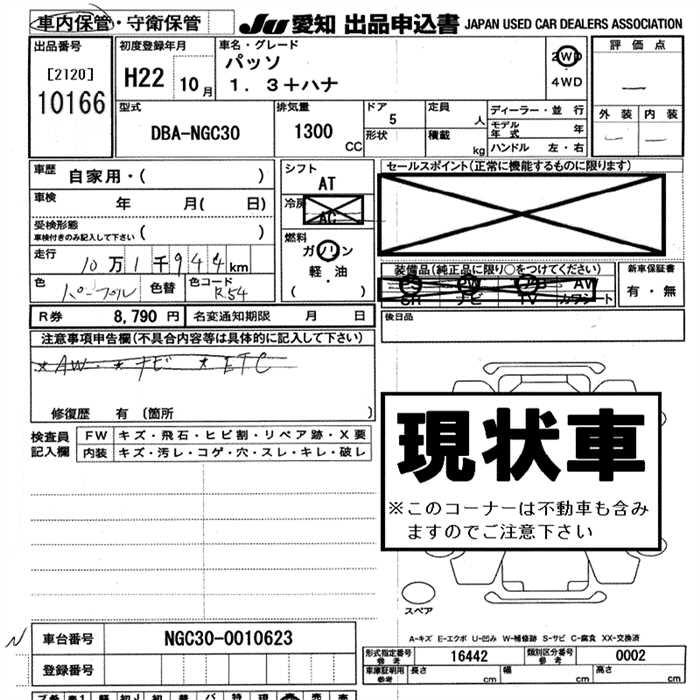 車内保管・守衛保管
JU 愛知 出品申込書 JAPAN USED CAR DEALERS ASSOCIATION
出品番号
[2120]
10166
初度登録年月
H22 10月
車名・グレード
パッソ
1.3+ハナ
2WD
4WD
評価点
外装 内装
型式
DBA-NGC30
排気量
1300
CC
ドア
5
形状
定員
人
積載
kg
ディーラー・並行
モデル年式 年
ハンドル 左・右
車歴 自家用・( )
車検 年 月( 日)
受検形態
車検付きのみ記入して下さい ( )
走行 10万1千944km
色 パープル 色替 色コード R54
シフト
AT
冷房
AC
燃料
ガソリン
軽・油
( )
セールスポイント(正常に機能するものに限ります)
装備品(純正品に限り○をつけてください)
SR ナビ TV カワシート
AV
新車保証書
有・無
後日品
R券 8,790円 名変通知期限 月 日
注意事項申告欄(不具合内容等は具体的に記入して下さい)
*AW *ナビ *ETC
修復歴 有 (箇所 )
検査員
記入欄
FW キズ・飛石・ヒビ割・リペア跡・X要
内装 キズ・汚レ・コゲ・穴・スレ・キレ・破レ
現状車
※このコーナーは不動車も含み
ますのでご注意下さい
スペア
A-キズ E-エクボ U-凹み W-補修跡 S-サビ C-腐食 XX-交換済
N
車台番号 NGC30-0010623
登録番号
形式指定番号
参考
16442
類別区分番号
参考
0002
車庫証明用
参考
長さ cm 幅 cm 高さ cm